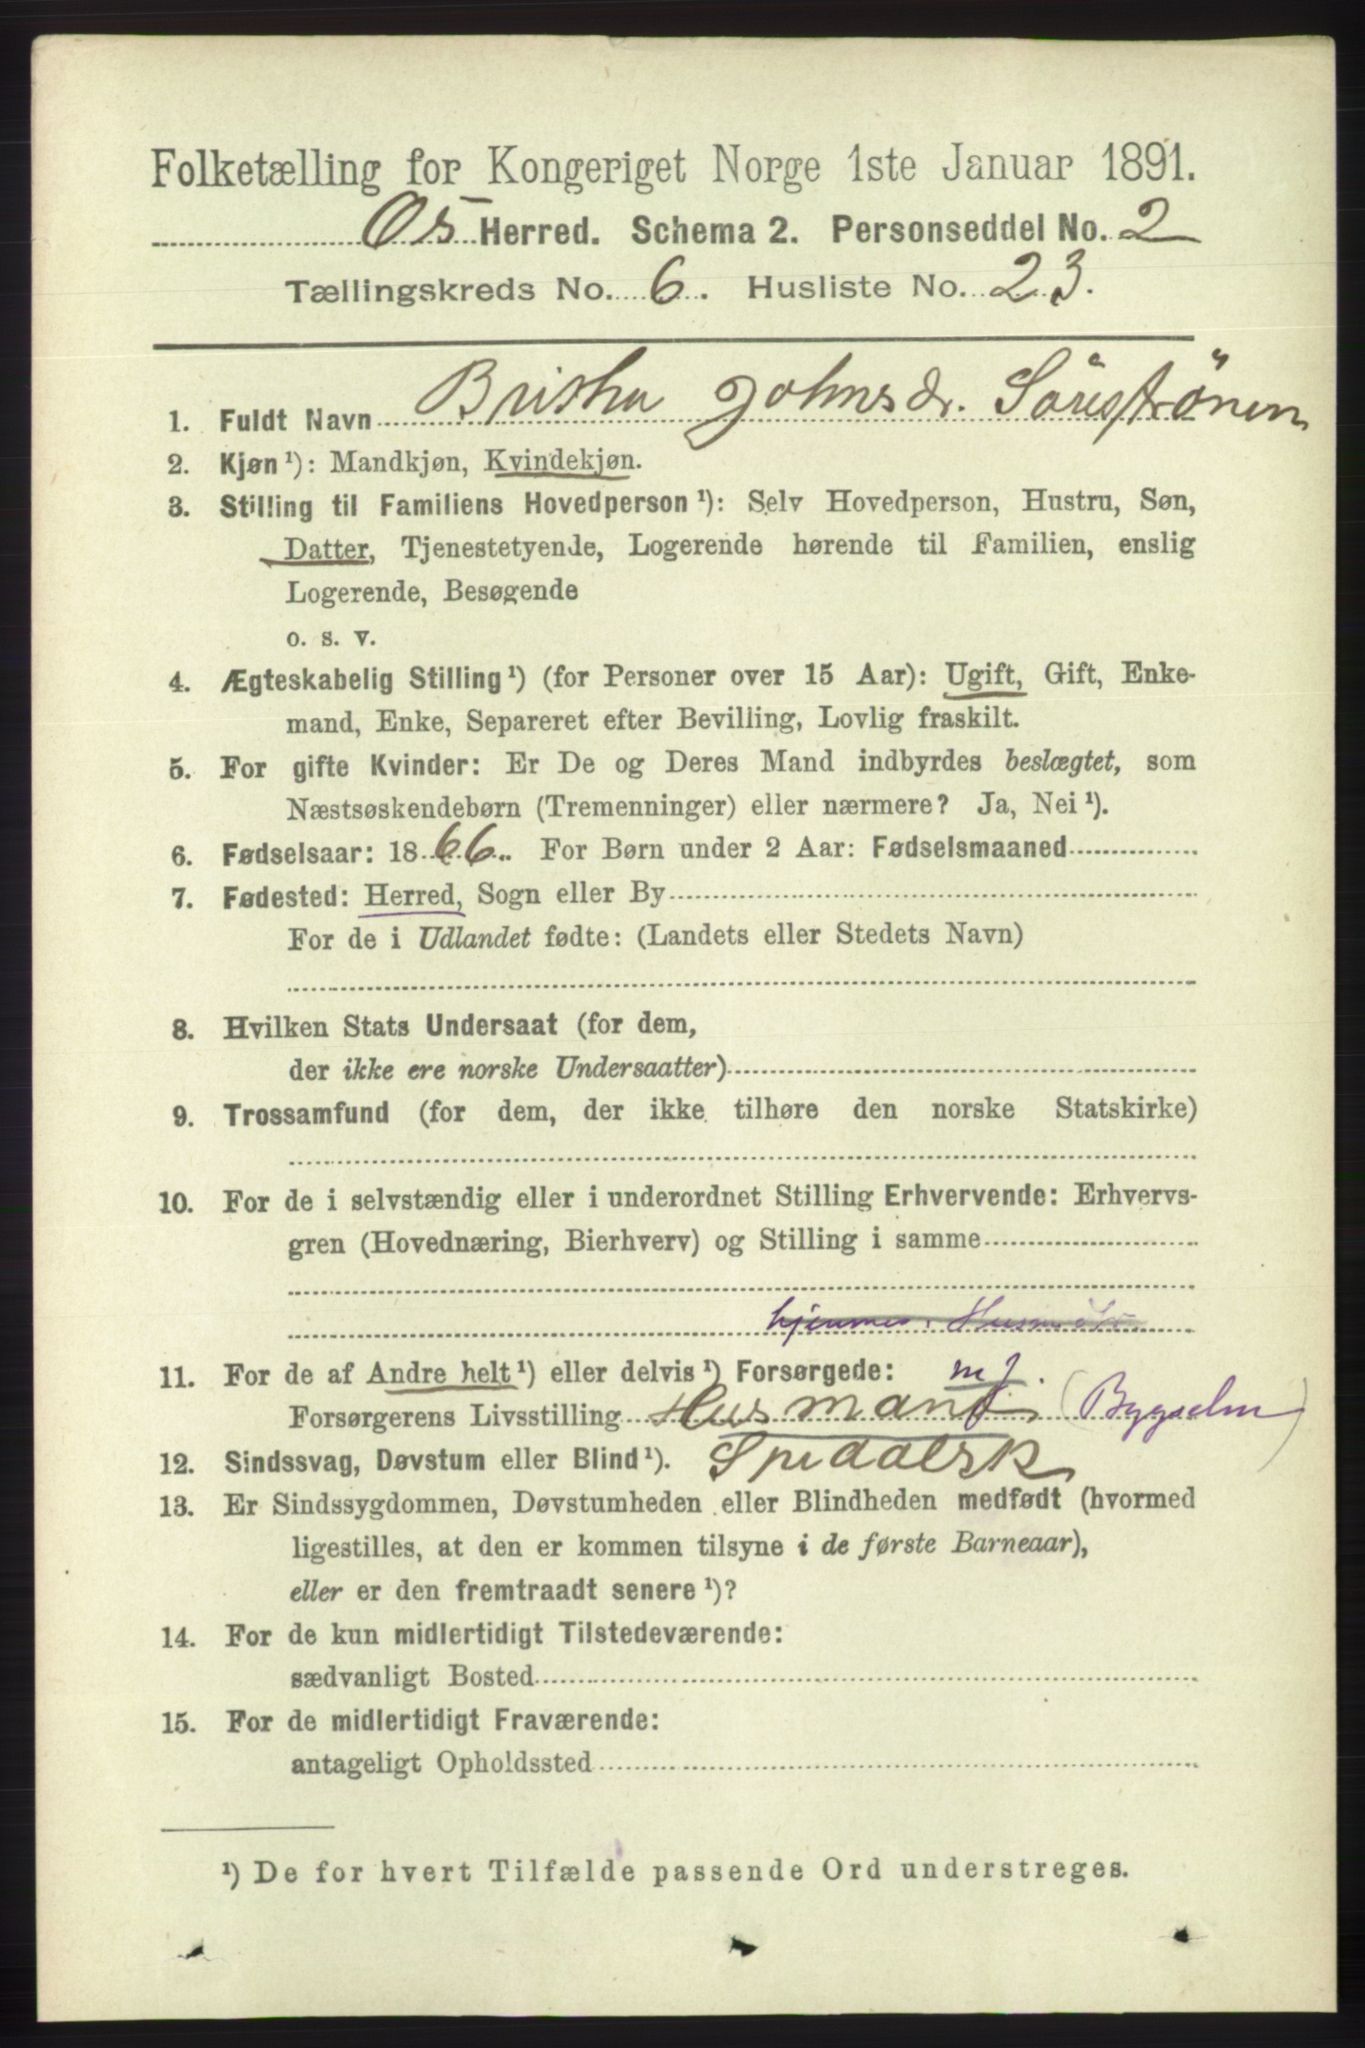 Folketælling for Kongeriget Norge 1ste Januar 1891.
Os Herred. Schema 2. Personseddel No. 2
Tællingskreds No. 6. Husliste No. 23.
1. Fuldt Navn Britha Johnsdr. Sörströnen
2. Kjøn¹): Mandkjøn, Kvindekjøn.
3. Stilling til Familiens Hovedperson¹): Selv Hovedperson, Hustru, Søn,
Datter, Tjenestetyende, Logerende hørende til Familien, enslig
Logerende, Besøgende
o. s. v.
4. Ægteskabelig Stilling¹) (for Personer over 15 Aar): Ugift, Gift, Enke-
mand, Enke, Separeret efter Bevilling, Lovlig fraskilt.
5. For gifte Kvinder: Er De og Deres Mand indbyrdes beslægtet, som
Næstsøskendebørn (Tremenninger) eller nærmere? Ja, Nei¹).
6. Fødselsaar: 1866. For Børn under 2 Aar: Fødselsmaaned
7. Fødested: Herred, Sogn eller By
For de i Udlandet fødte: (Landets eller Stedets Navn)
8. Hvilken Stats Undersaat (for dem,
der ikke ere norske Undersaatter)
9. Trossamfund (for dem, der ikke tilhøre den norske Statskirke)
10. For de i selvstændig eller i underordnet Stilling Erhvervende: Erhvervs-
gren (Hovednæring, Bierhverv) og Stilling i samme
11. For de af Andre helt¹) eller delvis¹) Forsørgede: m J.
Forsørgerens Livsstilling Husmand
12. Sindssvag, Døvstum eller Blind¹). Spedalsk
13. Er Sindssygdommen, Døvstumheden eller Blindheden medfødt (hvormed
ligestilles, at den er kommen tilsyne i de første Barneaar),
eller er den fremtraadt senere¹)?
14. For de kun midlertidigt Tilstedeværende:
sædvanligt Bosted
15. For de midlertidigt Fraværende:
antageligt Opholdssted
¹) De for hvert Tilfælde passende Ord understreges.